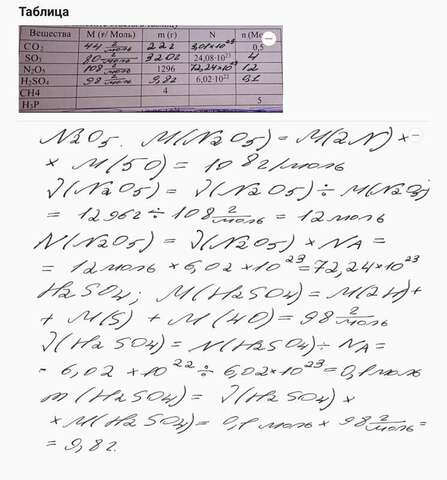 Таблица
Вещества M (г/ Моль) m (г) N n (Мо
CO2 44 г/моль 22г 3,01×10²³ 0,5
SO3 80 г/моль 320г 24,08·10²³ 4
N2O5 108 г/моль 1296 72,24×10²³ 12
H2SO4 98 г/моль 9,8г 6,02·10²² 0,1
CH4 4
H3P 5
N2O5. M(N2O5) = M(2N) ×
× M(5O) = 108г/моль
√(N2O5) = √(N2O5) ÷ M(N2O5)
= 1296г ÷ 108 г/моль = 12моль
N(N2O5) = √(N2O5) × NA =
= 12моль × 6,02 × 10²³ = 72,24×10²³
H2SO4; M(H2SO4) = M(2H) +
+ M(S) + M(4O) = 98 г/моль
√(H2SO4) = N(H2SO4) ÷ NA =
- 6,02 × 10²² ÷ 6,02×10²³ = 0,1моль
m(H2SO4) = √(H2SO4) ×
× M(H2SO4) = 0,1 моль × 98 г/моль =
= 9,8г.